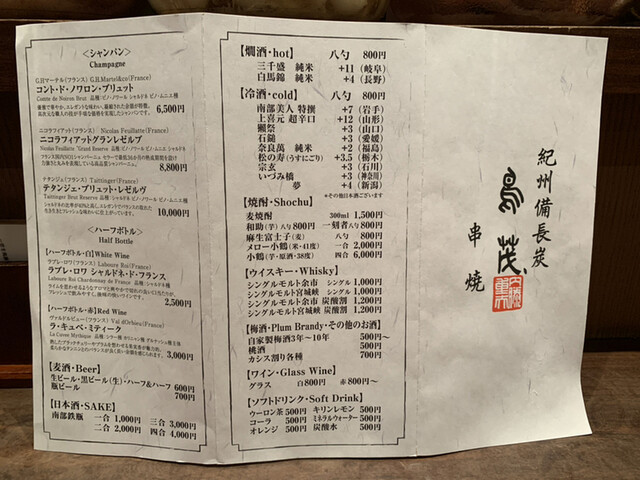 【シャンパン】
Champagne
G.Hマーテル(フランス) G.H.Martel&co(France)
コント・ド・ノワロン・ブリュット
Comte de Noiron Brut 品種:ピノ・ノワール シャルドネ ピノ・ムニエ種
6,500円
ニコラフィアット(フランス) Nicolas Feuillatte(France)
ニコラフィアットグランレゼルブ
8,800円
テタンジェ(フランス) Taittinger(France)
テタンジェ・ブリュット・レゼルヴ
Taittinger Brut Reserve 品種:ピノ・ノワール ピノ・ムニエ シャルドネ
10,000円
<ハーフボトル>
Half Bottle
【ハーフボトル・白】White Wine
ラブレ・ロワ(フランス) Laboure Roi(France)
ラブレ・ロワ シャルドネ・ド・フランス
Laboure Roi Chardonnay de France 品種:シャルドネ種
2,500円
【ハーフボトル・赤】Red Wine
ヴァルドルビュー(フランス) Val d'Orbieu(France)
ラ・キュベ・ミティーク
3,000円
【麦酒・Beer】
生ビール・黒ビール(生)・ハーフ&ハーフ 600円
瓶ビール 700円
【日本酒・SAKE】
南部鉄瓶 一合 1,000円 三合 3,000円
二合 2,000円 四合 4,000円
【燗酒・hot】 八勺 800円
三千盛 純米 +11 (岐阜)
白馬錦 純米 +4 (長野)
【冷酒・cold】 八勺 800円
南部美人 特撰 +7 (岩手)
上喜元 超辛口 +12 (山形)
獺祭 +3 (山口)
石鎚 +3 (愛媛)
奈良萬 純米 +2 (福島)
松の寿(うすにごり) +3.5 (栃木)
宗玄 +3 (石川)
いづみ橋 +3 (神奈川)
夢 +4 (新潟)
*その他日本酒ございます
【焼酎・Shochu】
麦焼酎 300ml 1,500円
和助(芋) 八勺 800円 一刻者 八勺 800円
麻生富士子(麦) 八勺 800円
メロー小鶴(米・41度) 一合 2,000円
小鶴(芋・原酒・38度) 四合 6,000円
【ウイスキー・Whisky】
シングルモルト余市 シングル 1,000円
シングルモルト宮城峡 シングル 1,000円
シングルモルト余市 炭酸割 1,200円
シングルモルト宮城峡 炭酸割 1,200円
【梅酒・Plum Brandy・その他のお酒】
自家製梅酒3年~10年 500円~
桃酒 500円~
カシス割り各種 700円
【ワイン・Glass Wine】
グラス 白800円 赤800円~
【ソフトドリンク・Soft Drink】
ウーロン茶 500円 キリンレモン 500円
コーラ 500円 ミネラルウォーター 500円
オレンジ 500円 炭酸水 500円
紀州備長炭
鳥茂
串焼